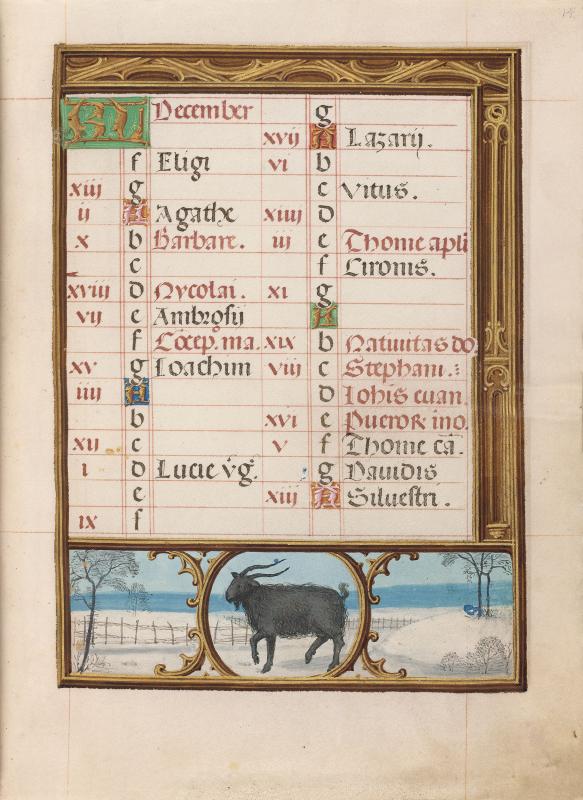 KL December
f Eligi
xiij g
ij A Agathe
x b Barbare.
c
xviij d Nycolai.
vij e Ambrosij
f Cōcep. ma.
xv g Ioachim
iiij A
b
xij c
i d Lucie v̄g.
e
ix f
g
xvij A Lazarij.
vi b
c Vitus.
xiiij d
iij e Thome apli
f Cironis.
xi g
A
xix b Natiuitas do.
viij c Stephani.:
d Iohis euan.
xvi e Pueroꝝ ino.
v f Thome cā.
g Dauidis
xiij A Siluestri.